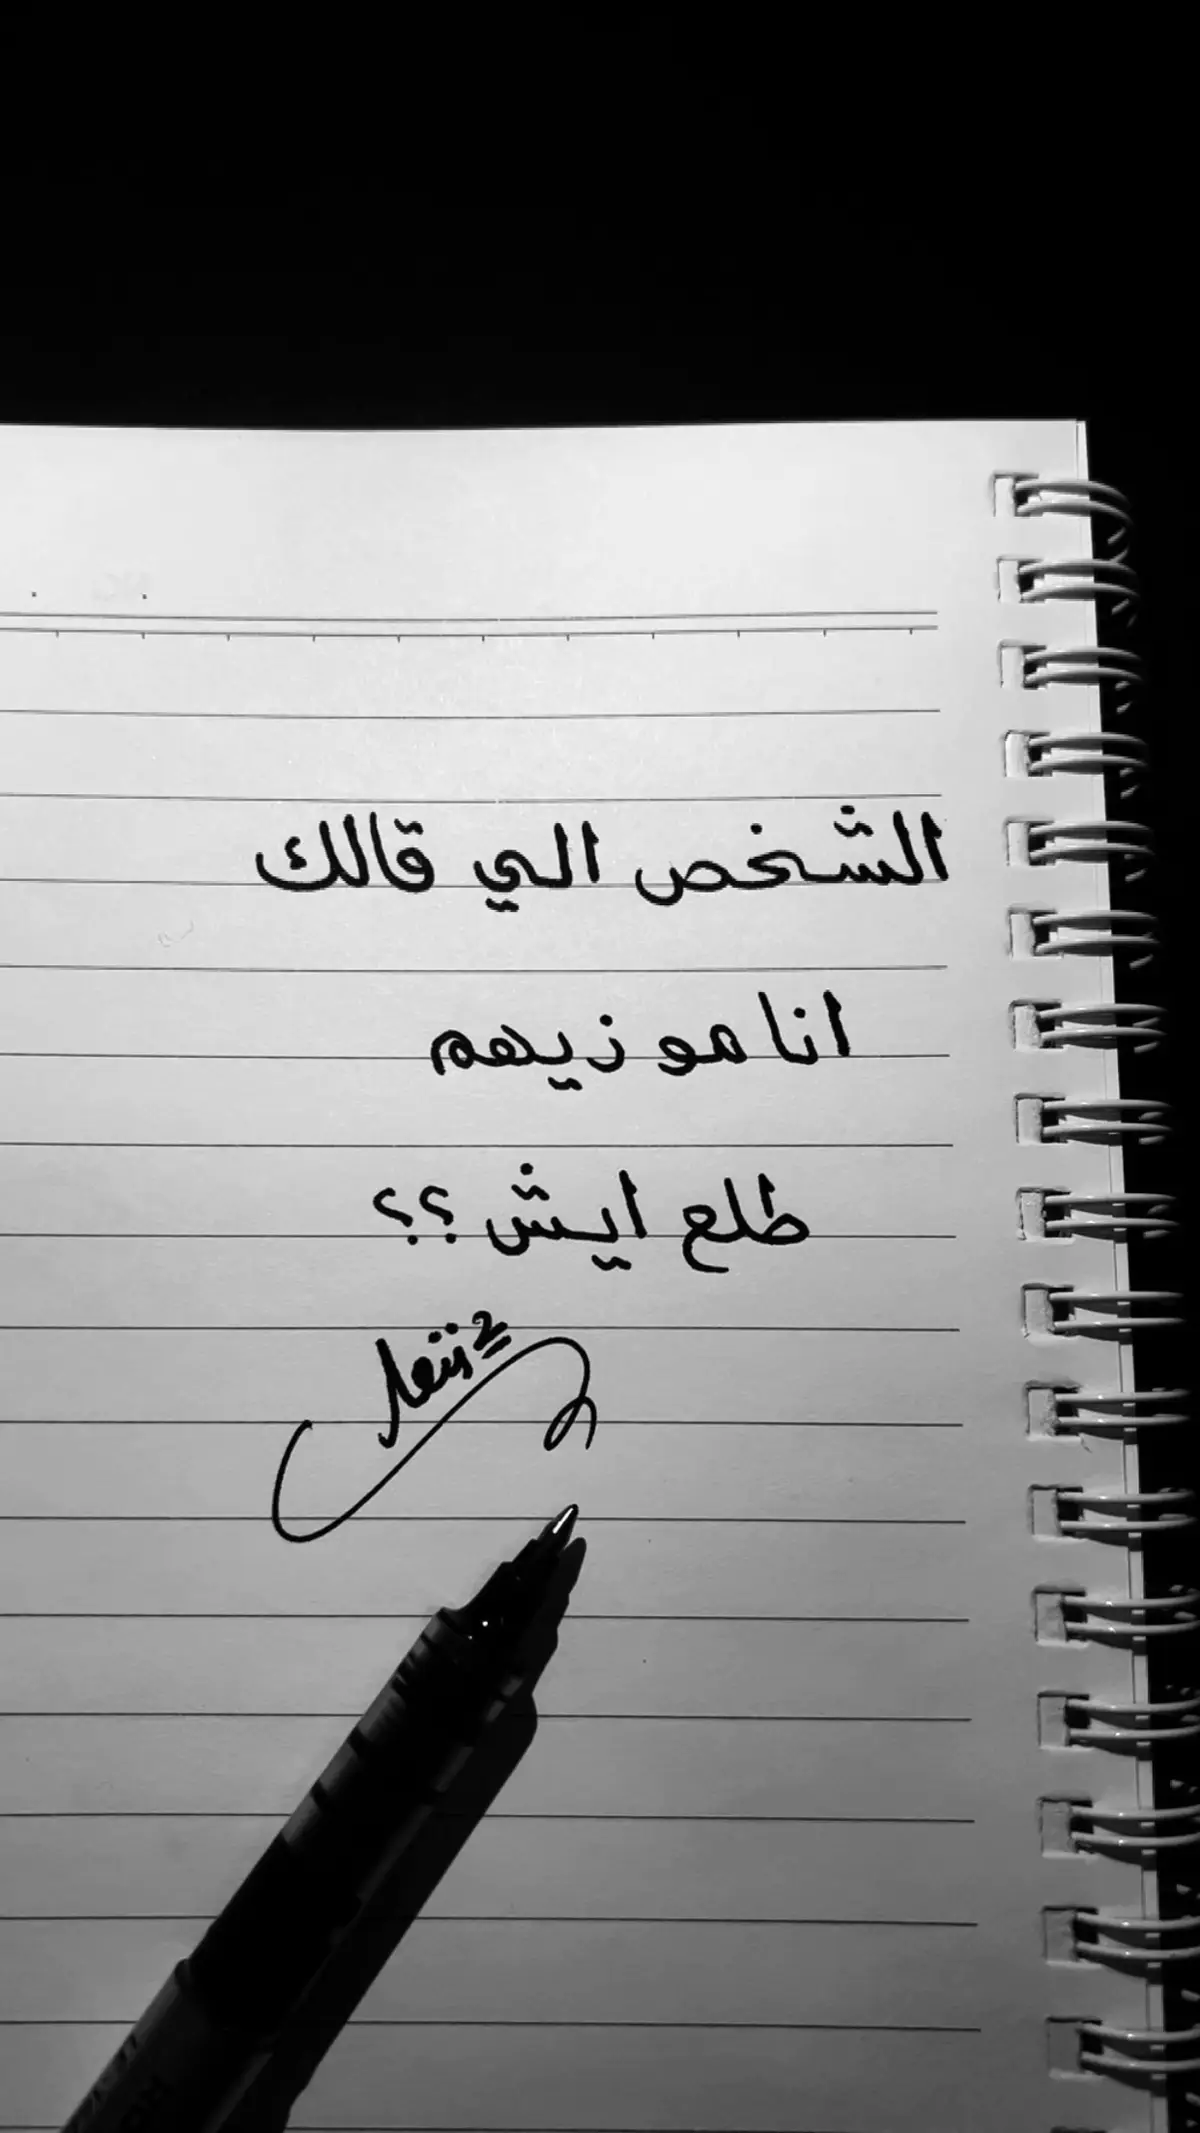 الشخص الي قالك
انا مو زيهم
طلع ايش ؟؟